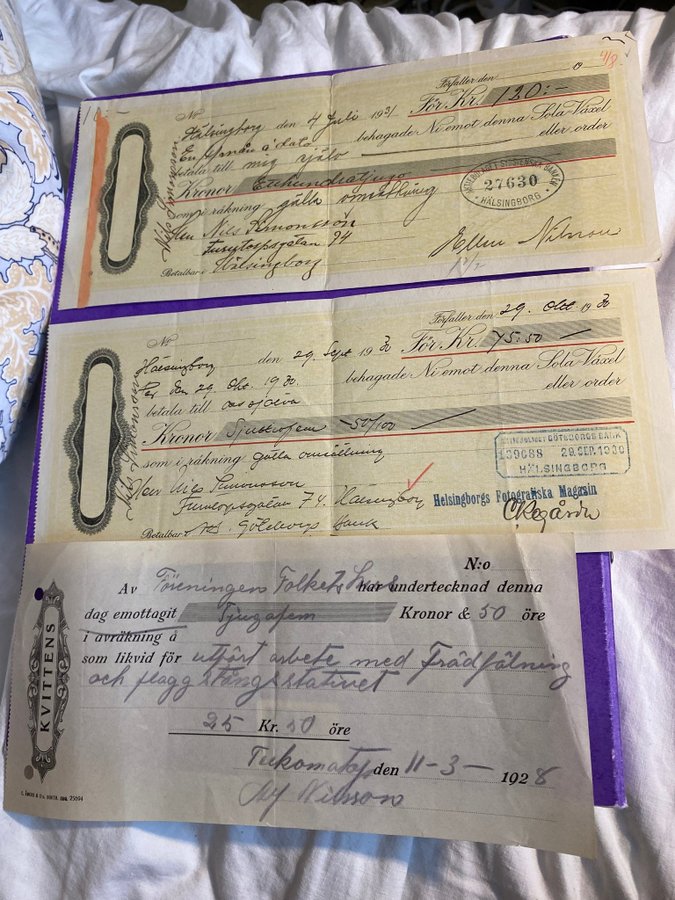 10:-
4/8
Förfaller den 0
No
Hälsingborg den 4 Juli 1931 För Kr. 120:-
En månad à dato behagade Ni emot denna Sola-Växel
betala till mig själv eller order
Kronor Etthundratjugo
som i räkning gälla omsättning
Herr Nils Simonsson
94
Betalbar i Hälsingborg
27630
HÄLSINGBORG
Ellen Nilsson
Nils Simonsson
Förfaller den 29 Okt 1930
No
Hälsingborg den 29 Sept 1930 För Kr. 75.50
Per den 29 Okt. 1930. behagade Ni emot denna Sola-Växel
betala till oss själva eller order
Kronor Sjuttiofem 50/100
som i räkning gälla omsättning
Herr Nils Simonsson
74. Hälsingborg
Betalbar Göteborgs Bank
Nils Simonsson
GÖTEBORGS BANK
139088 29.SEP.1930
HÄLSINGBORG
Helsingborgs Fotografiska Magasin
KVITTENS
N:o
Av Föreningen Folkets hus har undertecknad denna
dag emottagit Tjugofem Kronor & 50 öre
i avräkning å
som likvid för utfört arbete med Trädfälning
och flaggstångsstativet
25 Kr. 50 öre
den 11-3- 1928
Nilsson